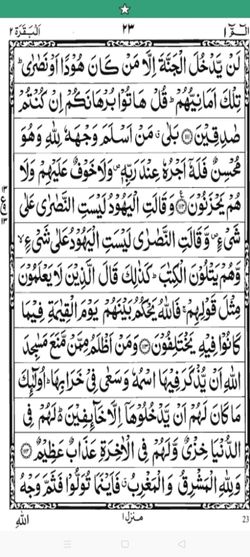 البقرة ٢
٢٣
الٓمّ ١
لَنْ يَّدْخُلَ الْجَنَّةَ اِلَّا مَنْ كَانَ هُوْدًا اَوْ نَصٰرٰىؕ
تِلْكَ اَمَانِيُّهُمْؕ قُلْ هَاتُوْا بُرْهَانَكُمْ اِنْ كُنْتُمْ
صٰدِقِيْنَ ﴿۱۱۱﴾ بَلٰىۗ مَنْ اَسْلَمَ وَجْهَهٗ لِلّٰهِ وَهُوَ
مُحْسِنٌ فَلَهٗۤ اَجْرُهٗ عِنْدَ رَبِّهٖ۪ وَلَا خَوْفٌ عَلَيْهِمْ وَلَا
هُمْ يَحْزَنُوْنَ ﴿۱۱۲﴾ وَقَالَتِ الْيَهُوْدُ لَيْسَتِ النَّصٰرٰى عَلٰى
شَىْءٍ۪ وَّقَالَتِ النَّصٰرٰى لَيْسَتِ الْيَهُوْدُ عَلٰى شَىْءٍۙ
وَّهُمْ يَتْلُوْنَ الْكِتٰبَؕ كَذٰلِكَ قَالَ الَّذِيْنَ لَا يَعْلَمُوْنَ
مِثْلَ قَوْلِهِمْۚ فَاللّٰهُ يَحْكُمُ بَيْنَهُمْ يَوْمَ الْقِيٰمَةِ فِيْمَا
كَانُوْا فِيْهِ يَخْتَلِفُوْنَ ﴿۱۱۳﴾ وَمَنْ اَظْلَمُ مِمَّنْ مَّنَعَ مَسٰجِدَ
اللّٰهِ اَنْ يُّذْكَرَ فِيْهَا اسْمُهٗ وَسَعٰى فِىْ خَرَابِهَاؕ اُولٰٓئِكَ
مَا كَانَ لَهُمْ اَنْ يَّدْخُلُوْهَاۤ اِلَّا خَآئِفِيْنَؕ لَهُمْ فِى
الدُّنْيَا خِزْىٌ وَّلَهُمْ فِى الْاٰخِرَةِ عَذَابٌ عَظِيْمٌ ﴿۱۱۴﴾
وَلِلّٰهِ الْمَشْرِقُ وَالْمَغْرِبُۗ فَاَيْنَمَا تُوَلُّوْا فَثَمَّ وَجْهُ
اللّٰهِ
منزل ١
23